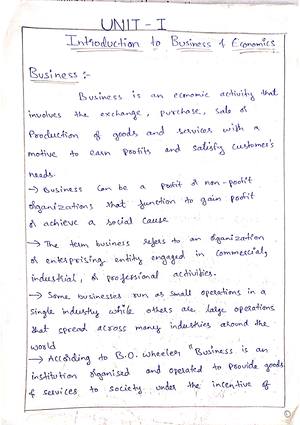 UNIT - I
Introduction to Business & Economics
Business :-
Business is an economic activity that
involves the exchange, purchase, sale or
Production of goods and services with a
motive to earn profits and satisfy customer's
needs.
→ Business can be a profit or non-profit
organizations that function to gain profit
or achieve a social cause
→ The term business refers to an organization
or enterprising entity engaged in commercial,
industrial, or professional activities.
→ Some businesses run as small operations in a
single industry while others are large operations
that spread across many industries around the
world
→ According to B.O. wheeler, "Business is an
institution organised and operated to provide goods
& services to society under the incentive of